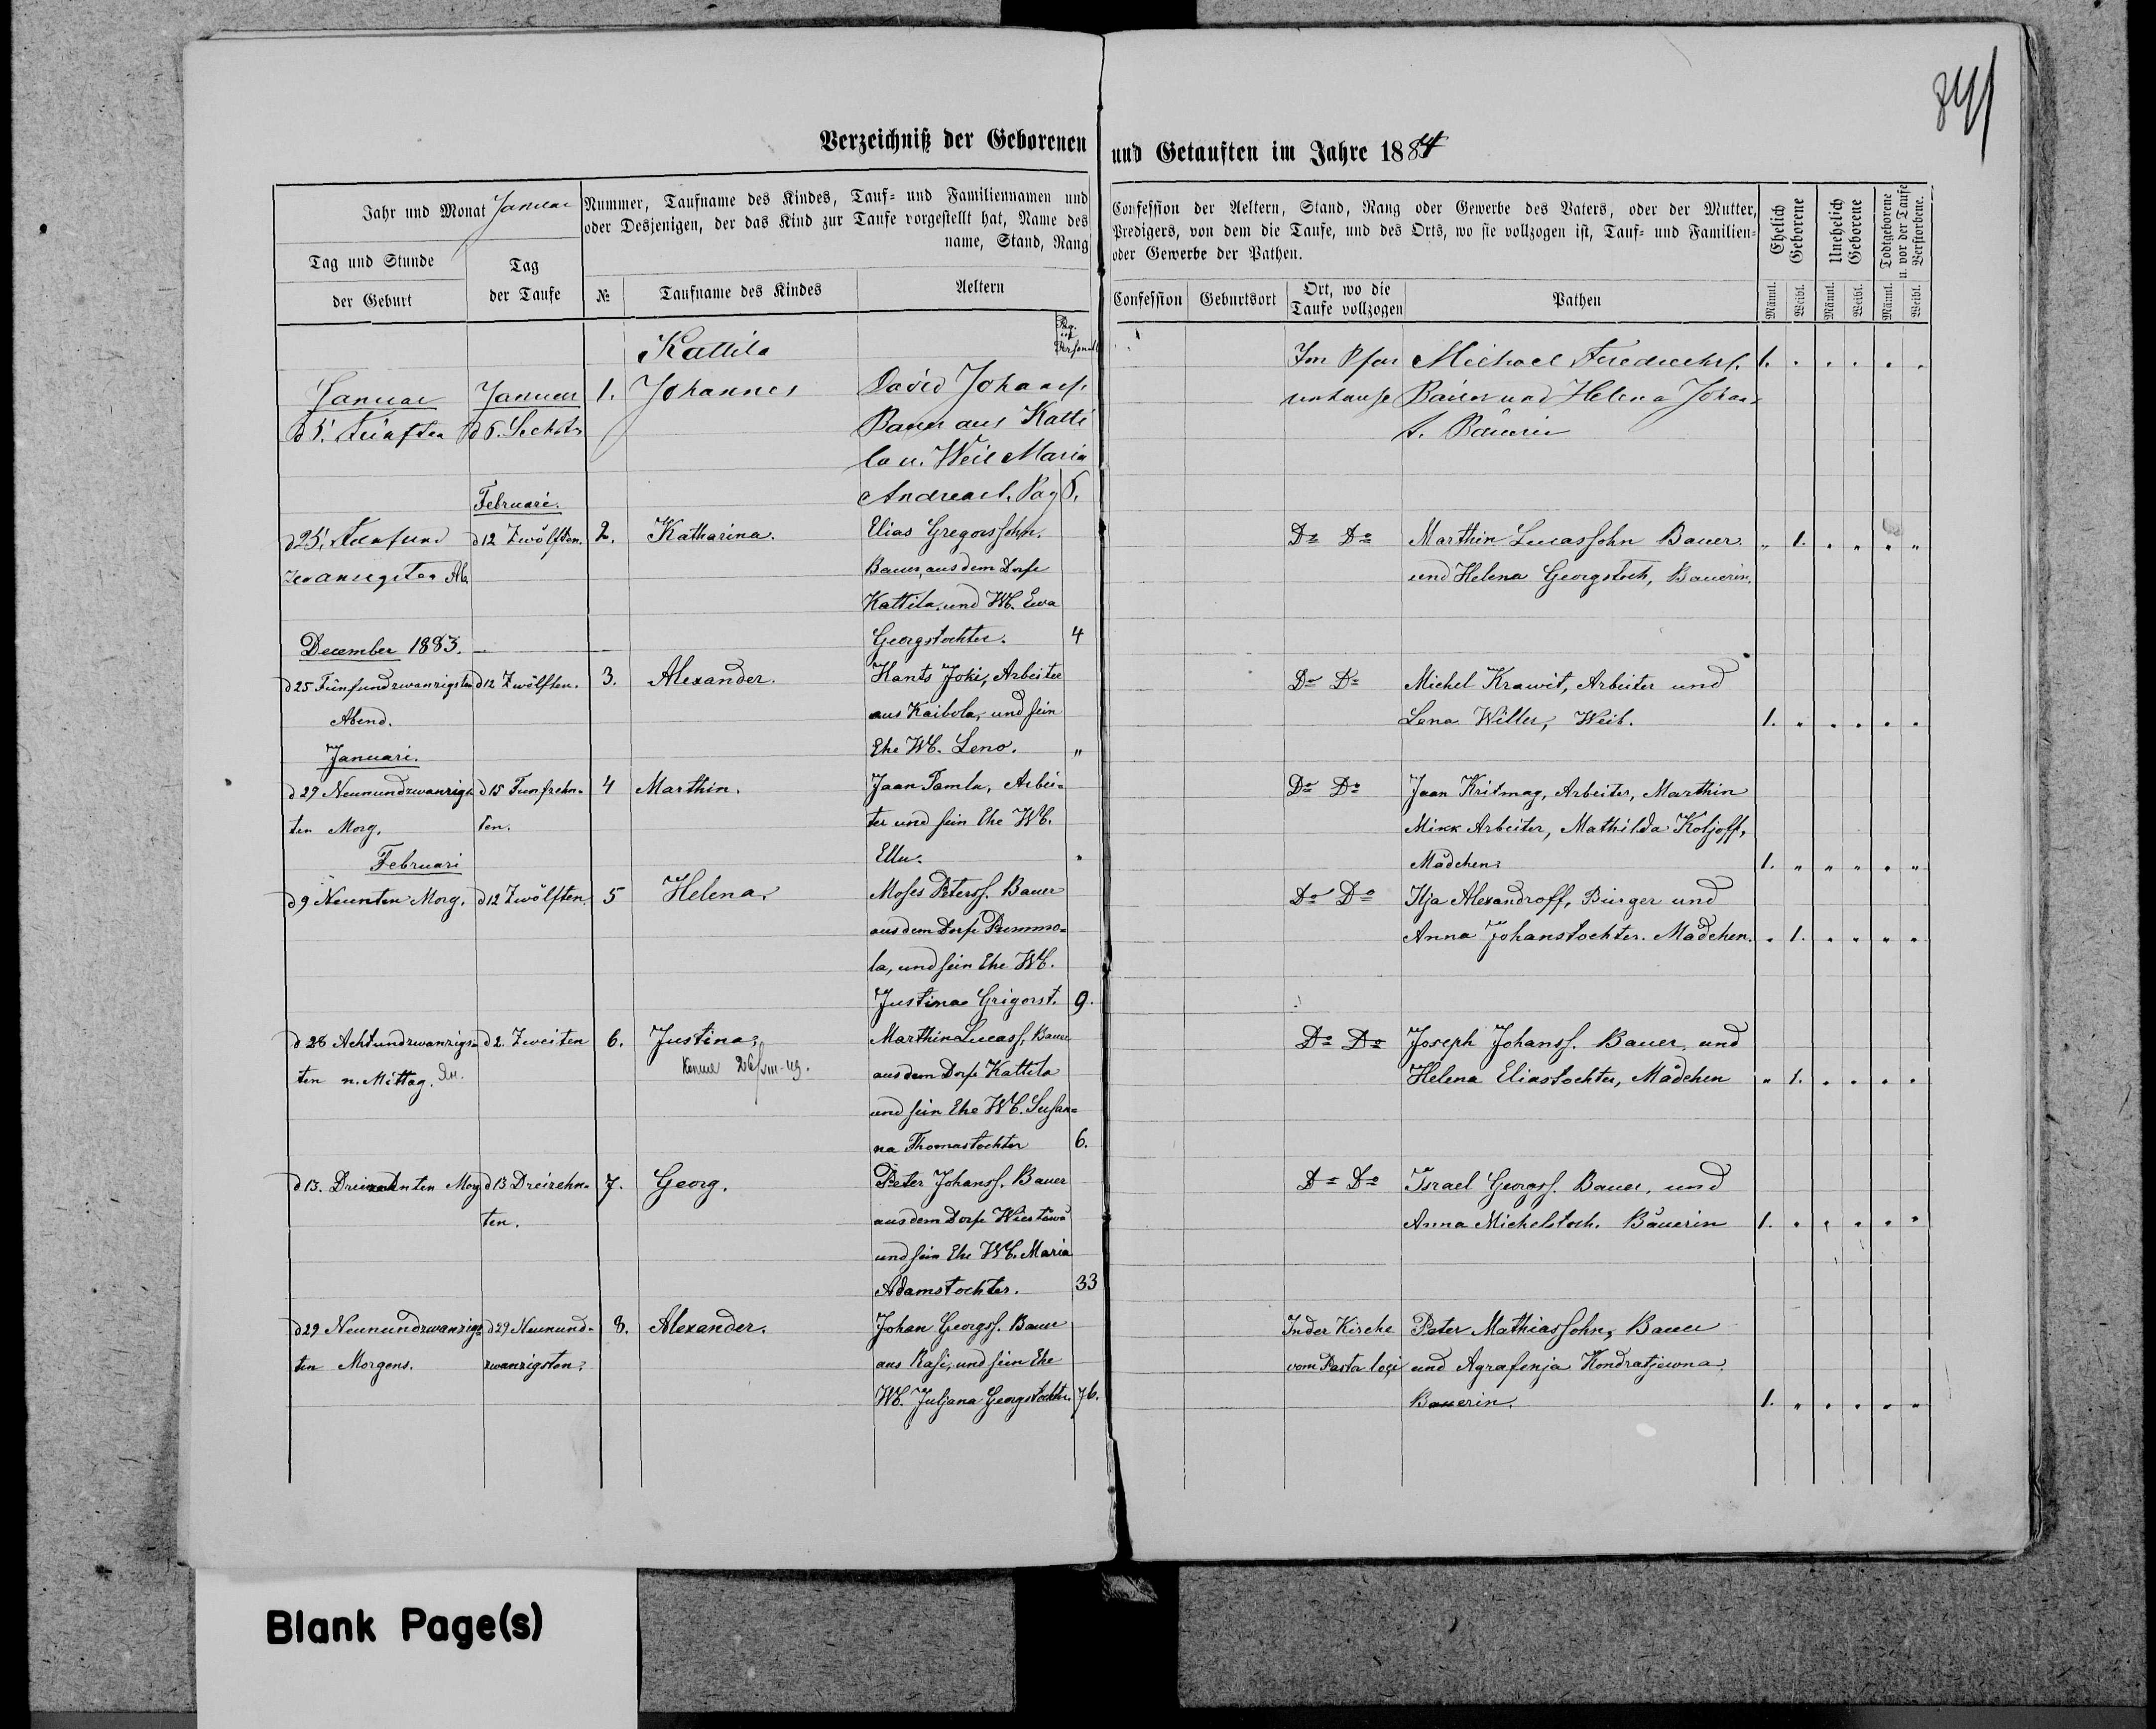 841
Verzeichniß der Geborenen und Getauften im Jahre 1884
Jahr und Monat Januar
Tag und Stunde
der Geburt
Tag
der Taufe
Nummer, Taufname des Kindes, Tauf- und Familiennamen und
oder Desjenigen, der das Kind zur Taufe vorgestellt hat, Name des
name, Stand, Rang
№
Taufname des Kindes
Aeltern
Confession der Aeltern, Stand, Rang oder Gewerbe des Vaters, oder der Mutter,
Predigers, von dem die Taufe, und des Orts, wo sie vollzogen ist, Tauf- und Familien-
oder Gewerbe der Pathen.
Confession
Geburtsort
Ort, wo die
Taufe vollzogen
Pathen
Ehelich
Geborene
Unehelich
Geborene
Todtgeborene
u. vor der Taufe
Verstorbene.
Männl.
Weibl.
Männl.
Weibl.
Männl.
Weibl.
Kattila
Januar
d 5. Fünften
Januar
d 6. Sechst
1.
Johannes
David Johanss.
Bauer aus Katti
la u. Weib Maria
Andreast. Pag 5.
Im Pfar
Michael Friedrichs.
Bauer und Helena Johan
t. Bäuerin
1.
Februari.
d 25. Fünfund
zwanzigsten Ab.
d 12 Zwölften.
2.
Katharina.
Elias Gregorssohn.
Bauer, aus dem Dorfe
Kattila, und Wb. Ewa
Georgstochter. 4
Do Do
Marthin Lucassohn Bauer.
und Helena Georgstoch, Bauerin.
" 1.
December 1883.
d 25 Fünfundzwanzigsten
Abend.
d 12 Zwölften.
3.
Alexander.
Hants Joki, Arbeiter
aus Kaibola, und sein
Ehe Wb. Leno. "
Do Do
Michel Krawit, Arbeiter und
Lena Willer, Weib.
1.
Januari.
d 29 Neunundzwanzigs
ten Morg.
d 15 Funfzehn-
ten.
4
Marthin.
Jaan Tamla, Arbei-
ter und sein Ehe Wb.
Ellu.
Do Do
Jaan Kritmag, Arbeiter, Marthin
Mikk Arbeiter, Mathilda Koljoff,
Mädchen.
1.
Februari
d 9 Neunten Morg.
d 12 Zwölften.
5
Helena.
Moses Peterss. Bauer
aus dem Dorfe Pummo-
la, und sein Ehe Wb.
Justina Grigorst. 9.
Do Do
Ilja Alexandroff, Bürger und
Anna Johanstochter. Mädchen.
1.
d 28 Achtundzwanzigs-
ten n. Mittag.
d 2. Zweiten
6.
Justina.
26/VIII-49.
Marthin Lucass, Bauer
aus dem Dorfe Kattila
und sein Ehe Wb. Susan-
na Thomastochter 6.
Do Do
Joseph Johanss. Bauer, und
Helena Eliastochter, Mädchen
" 1.
d 13. Dreizehnten Morg
d 13 Dreizehn-
ten.
7.
Georg.
Peter Johanss. Bauer
aus dem Dorfe Wiestäwä
und sein Ehe Wb. Maria
Adamstochter. 33
Do Do
Israel Georgss. Bauer, und
Anna Michelstoch. Bäuerin
1.
d 29 Neunundzwanzigs
ten Morgens.
d 29 Neunund-
zwanzigsten.
8.
Alexander.
Johan Georgss. Bauer
aus Rasi, und sein Ehe
Wb. Juljana Georgstochter. 76.
In der Kirche
vom Pastor loci
Peter Mathiassohn, Bauer
und Agrafenja Kondratjewna.
Bauerin.
1.
Blank Page(s)